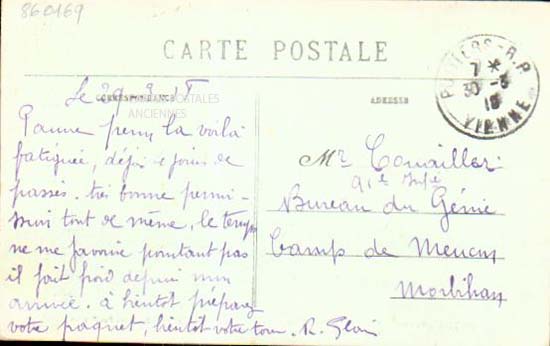 860169
CARTE POSTALE
CORRESPONDANCE
CARTES POSTALES
ANCIENNES
ADRESSE
POITIERS - R.P.
7 *
30 - 3
15
VIENNE
Le 29 3 15
la voilà
fatiguée, déjà jours de
passés. très bonne permi-
sion tout de même, le temps
ne me favorise pourtant pas
il fait froid depuis mon
arrivée. à bientôt préparez
votre paquet, bientôt votre tour. R.
Mr
91e Infie
Bureau du Génie
Camp de Meucon
Morbihan